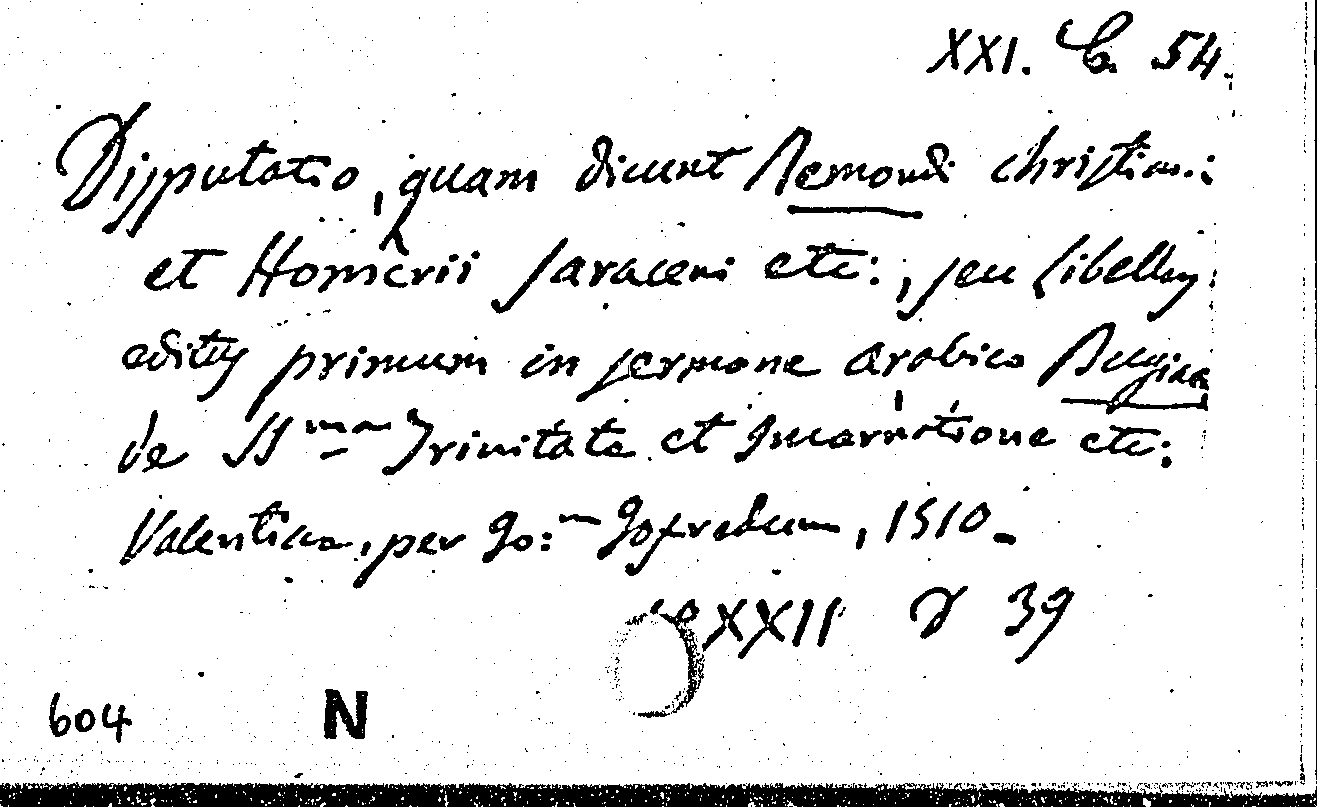 XXI. C. 54.
Disputatio, quam dicunt Remondi christiani
et Homerii Saraceni etc:, seu Libellus
editus primum in sermone Arabico Bugiae
de SS.ma Trinitate et Incarnatione etc:
Valentiae, per Jo:m Jofredum, 1510.
XXII D 39
604 N